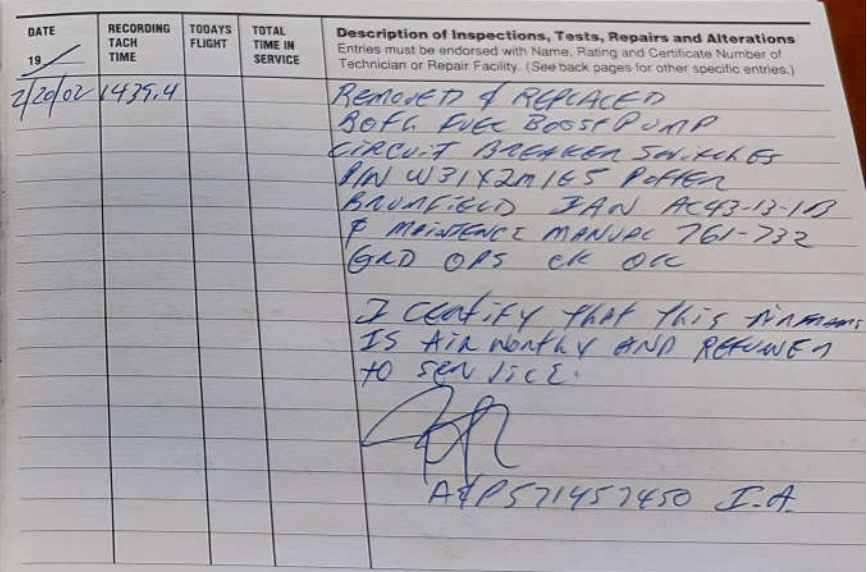 DATE
19
RECORDING
TACH
TIME
TODAYS
FLIGHT
TOTAL
TIME IN
SERVICE
Description of Inspections, Tests, Repairs and Alterations
Entries must be endorsed with Name, Rating and Certificate Number of
Technician or Repair Facility. (See back pages for other specific entries.)
2/20/02 1439.4 REMOVED & REPLACED
BOTH FUEL BOOST PUMP
CIRCUIT BREAKER SWITCHES
P/N W31X2M1G5 POTTER
BRUMFIELD IAW AC43-13-1B
& MAINTENCE MANUAL 761-732
GRD OPS CK
I CERTIFY THAT THIS
IS AIRWORTHY AND
TO SERVICE.
A&P571457450 I.A.